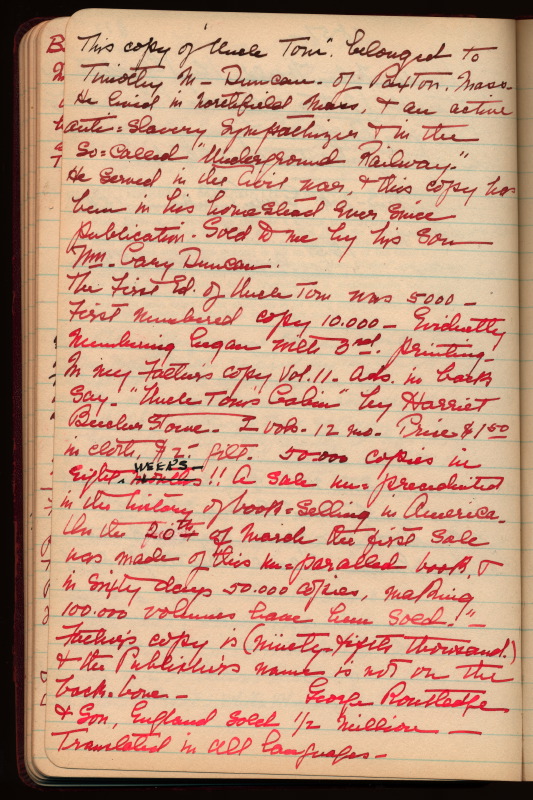 This copy of "Uncle Tom". belonged to
Timothy M- Duncan- of Paxton. Mass-
He lived in Northfield Mass, & an active
anti=Slavery Sympathizer & in the
So=Called "Underground Railway."
He Served in the Civil war, & this copy has
been in his homestead Ever Since
publication- Sold to me by his Son
Wm. Cary Duncan.
The First Ed. of Uncle Tom was 5000 -
First numbered copy 10.000 - Evidently
Numbering began with 3rd. printing-
In my Father's copy Vol. 11. Ads. in back
Say- "Uncle Tom's Cabin" by Harriet
Beecher Stowe- 2 vols. 12 mo. Price $1 50
in cloth, $2- gilt. 50.000 copies in
WEEKS-
Eight months!! A Sale un=precedented
in the history of book=Selling in America-
On the 20th of March the first Sale
was made of this un=paralled book, &
in Sixty days 50.000 copies, making
100.000 volumes have been Sold!"-
Father's copy is (ninety-fifth thousand!)
& the Publishers name is not on the
back-bone - George Routledge
& Son, England Sold 1/2 Million -
Translated in all languages-